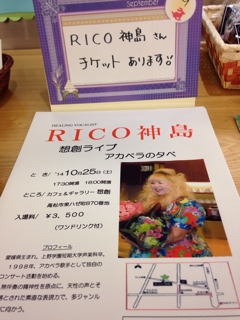 September
RICO神島さん
チケットあります!!
HEALING VOCALIST
RICO神島
想創ライブ
アカペラの夕べ
とき/'14 10月25日(土)
17:30開場 18:00開演
ところ/カフェ&ギャラリー 想創
高松市東ハゼ町870番地
入場料/¥3,500
(ワンドリンク付)
プロフィール
愛媛県生まれ。上野学園短期大学声楽科卒。
1998年、アカペラ歌手として独自の
コンサート活動を始める。